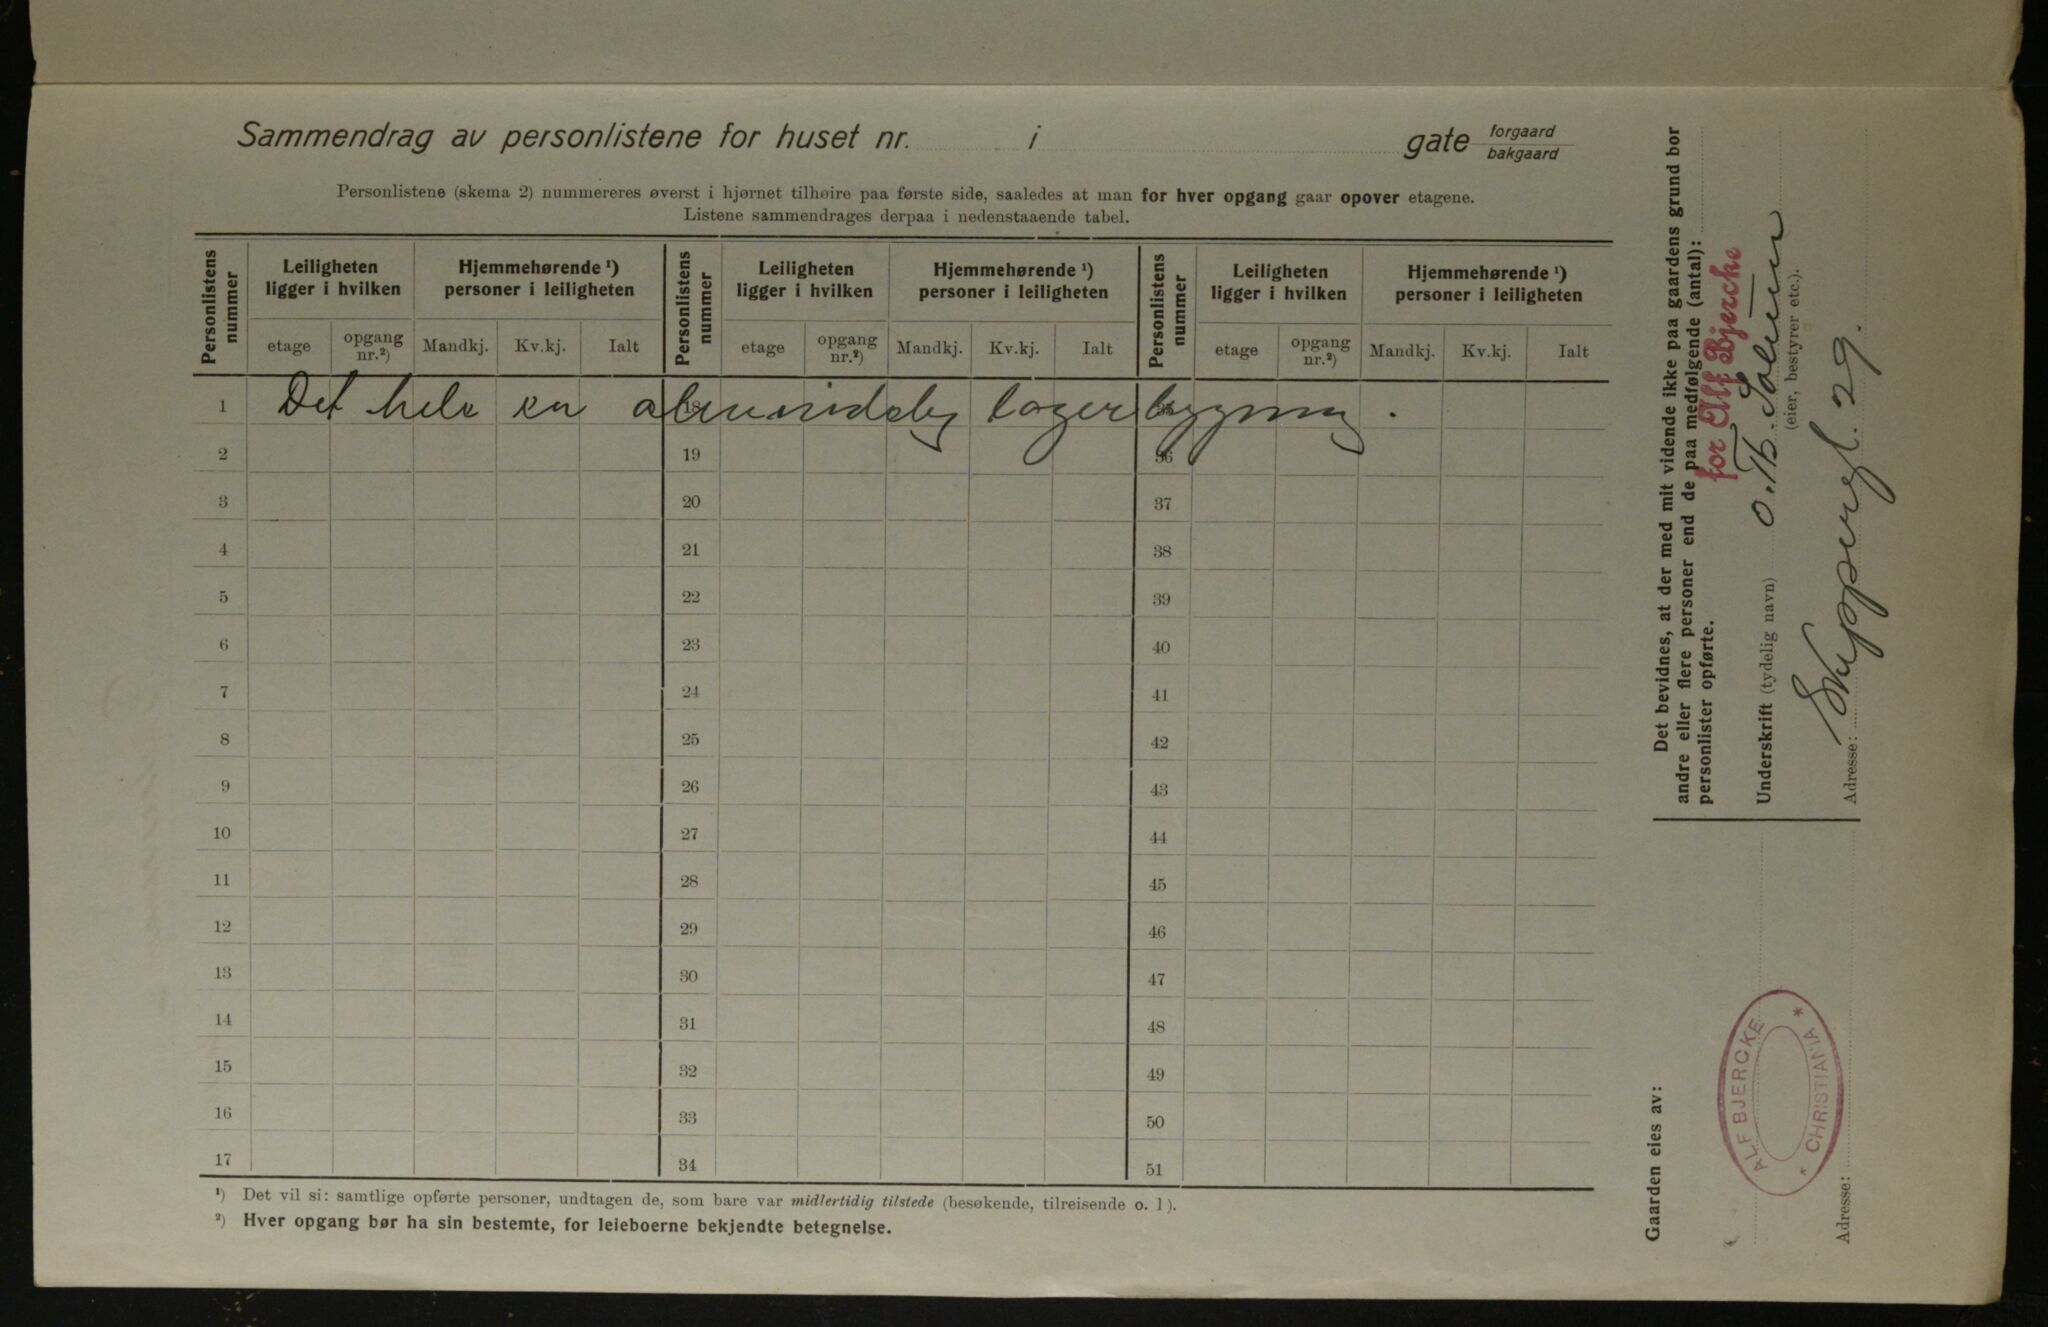 Sammendrag av personlistene for huset nr. i gate forgaard bakgaard
Personlistene (skema 2) nummereres øverst i hjørnet tilhøire paa første side, saaledes at man for hver opgang gaar opover etagene.
Listene sammendrages derpaa i nedenstaaende tabel.
Personlistens nummer
Leiligheten ligger i hvilken
Hjemmehørende ¹) personer i leiligheten
Personlistens nummer
Leiligheten ligger i hvilken
Hjemmehørende ¹) personer i leiligheten
Personlistens nummer
Leiligheten ligger i hvilken
Hjemmehørende ¹) personer i leiligheten
etage opgang nr.²) Mandkj. Kv.kj. Ialt etage opgang nr.²) Mandkj. Kv.kj. Ialt etage opgang nr.²) Mandkj. Kv.kj. Ialt
1 Det hele en 18 lagerbygning.
2 19 36
3 20 37
4 21 38
5 22 39
6 23 40
7 24 41
8 25 42
9 26 43
10 27 44
11 28 45
12 29 46
13 30 47
14 31 48
15 32 49
16 33 50
17 34 51
¹) Det vil si: samtlige opførte personer, undtagen de, som bare var midlertidig tilstede (besøkende, tilreisende o. l).
²) Hver opgang bør ha sin bestemte, for leieboerne bekjendte betegnelse.
Det bevidnes, at der med mit vidende ikke paa gaardens grund bor
andre eller flere personer end de paa medfølgende (antal):
personlister opførte.
for Alf Bjercke
Underskrift (tydelig navn) O. Th.
(eier, bestyrer etc.).
Adresse: Skippergt. 29.
Gaarden eies av:
ALF BJERCKE
* CHRISTIANIA *
Adresse: